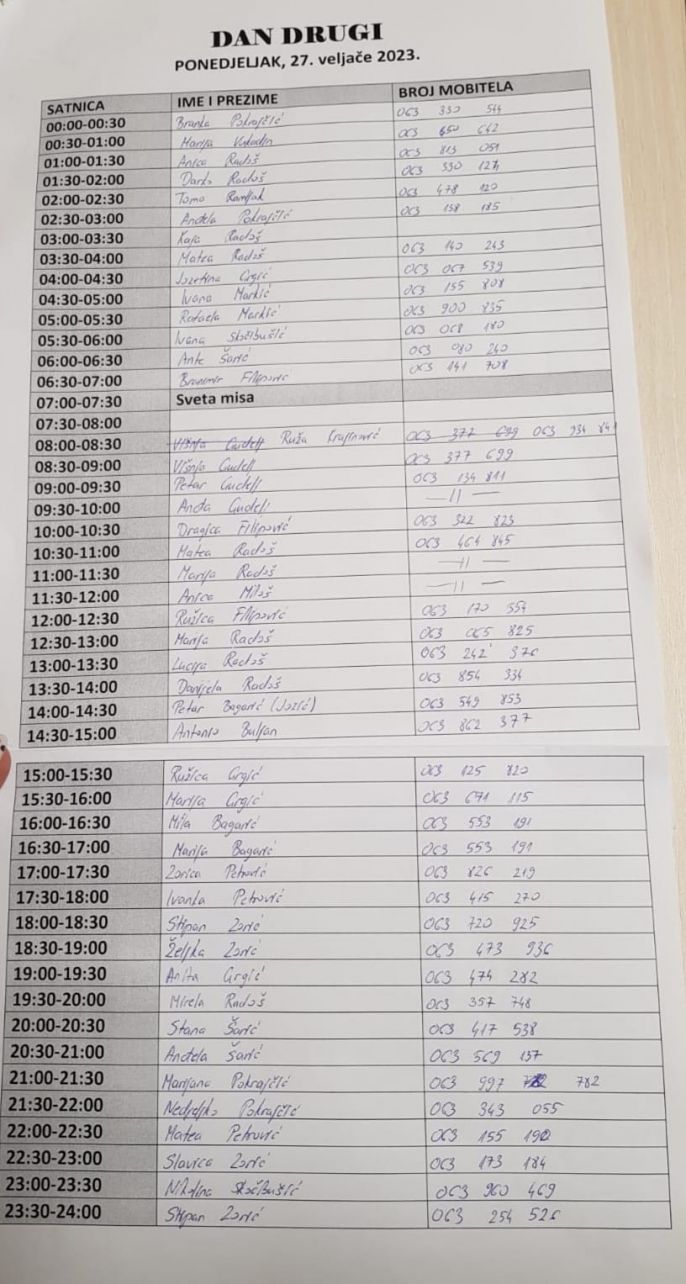 DAN DRUGI
PONEDJELJAK, 27. veljače 2023.
SATNICA IME I PREZIME BROJ MOBITELA
00:00-00:30 Branka Pokrajčić 063 330 544
00:30-01:00 Marija Vukadin 063 650 642
01:00-01:30 Anica Radoš 063 813 051
01:30-02:00 Darko Radoš 063 330 127
02:00-02:30 Tomo 063 478 120
02:30-03:00 Anđela Pokrajčić 063 138 185
03:00-03:30 Kaja Radoš
03:30-04:00 Matea Radoš 063 140 243
04:00-04:30 Jozefina Grgić 063 067 539
04:30-05:00 Ivana Markić 063 155 808
05:00-05:30 Rafaela Markić 063 900 835
05:30-06:00 Ivana Skočibušić 063 068 180
06:00-06:30 Ante Šarić 063 080 240
06:30-07:00 Branimir Filipović 063 141 708
07:00-07:30 Sveta misa
07:30-08:00
08:00-08:30 Višnja Gudelj Ruža Krajinović 063 377 699 063 934 841
08:30-09:00 Višnja Gudelj 063 377 699
09:00-09:30 Petar Gudelj 063 134 811
09:30-10:00 Aneta Gudelj —11—
10:00-10:30 Dragica Filipović 063 322 823
10:30-11:00 Matea Radoš 063 464 845
11:00-11:30 Marija Radoš —11—
11:30-12:00 Anica Miloš —11—
12:00-12:30 Ružica Filipović 063 170 554
12:30-13:00 Marija Radoš 063 065 825
13:00-13:30 Lucija Radoš 063 242 376
13:30-14:00 Danijela Radoš 063 854 334
14:00-14:30 Petar Bagarić (Jozić) 063 549 853
14:30-15:00 Antonio Buljan 063 862 377
15:00-15:30 Ružica Grgić 063 125 820
15:30-16:00 Marija Grgić 063 671 115
16:00-16:30 Mila Bagarić 063 553 191
16:30-17:00 Marija Bagarić 063 553 191
17:00-17:30 Zorica Petrović 063 826 219
17:30-18:00 Ivanka Petrović 063 415 270
18:00-18:30 Stipan Zorić 063 720 925
18:30-19:00 Željka Zorić 063 473 936
19:00-19:30 Anita Grgić 063 474 282
19:30-20:00 Mirela Radoš 063 357 748
20:00-20:30 Stana Šarić 063 417 538
20:30-21:00 Anđela Šarić 063 569 137
21:00-21:30 Marijana Pokrajčić 063 997 782
21:30-22:00 Nedjeljko Pokrajčić 063 343 055
22:00-22:30 Matea Petrović 063 155 190
22:30-23:00 Slavica Zorić 063 173 184
23:00-23:30 Nikolina Skočibušić 063 960 469
23:30-24:00 Stipan Zorić 063 254 526